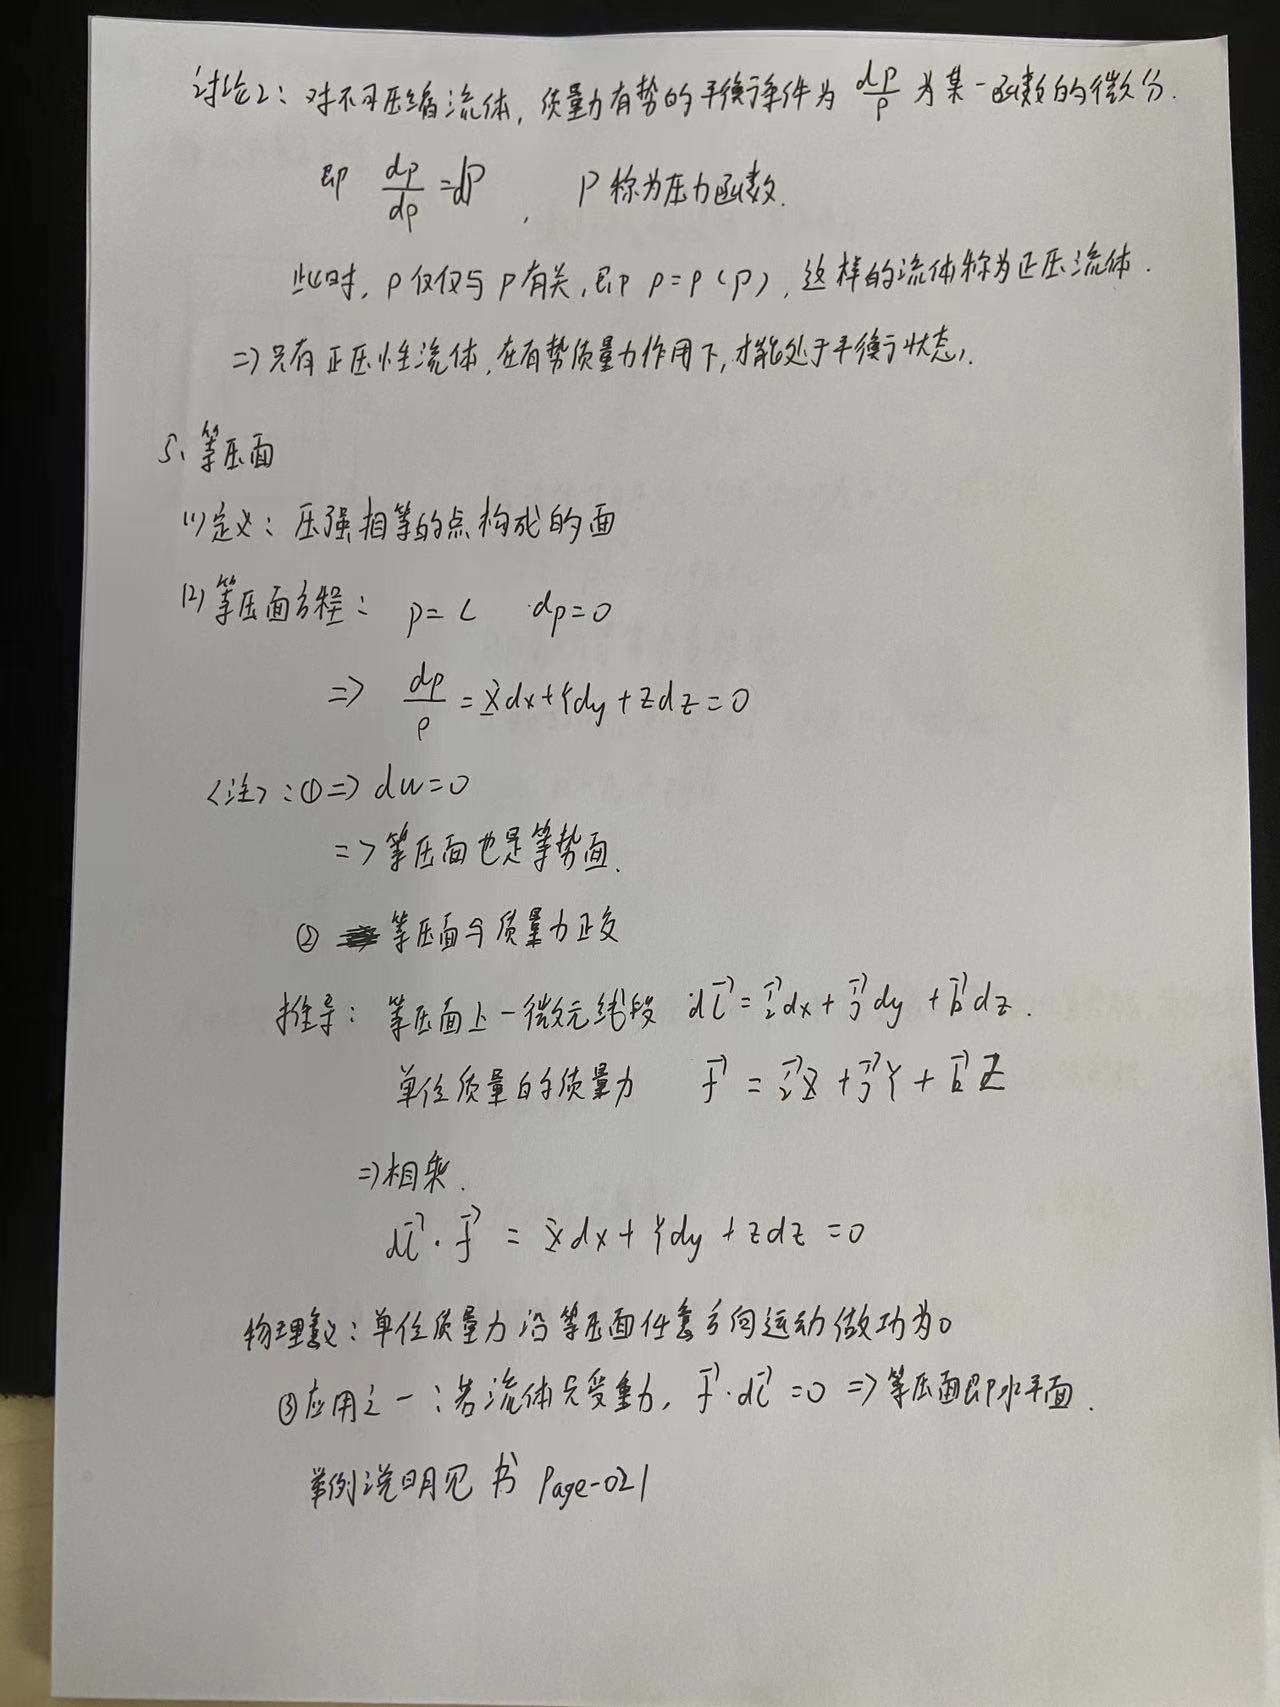 讨论2：对不可压缩流体，质量力有势的平衡条件为 dp/ρ 为某一函数的微分.
即 dp/dρ = dP ， P 称为压力函数.
此时，ρ 仅仅与 p 有关，即 ρ=ρ(p)，这样的流体称为正压流体.
=> 只有正压性流体，在有势质量力作用下，才能处于平衡状态.
5、等压面
(1) 定义：压强相等的点构成的面
(2) 等压面方程： p=C dp=0
=> dp/ρ = Xdx+Ydy+Zdz=0
<注>：① => du=0
=> 等压面也是等势面.
② 等压面与质量力正交
推导：等压面上一微元线段 dl⃗ = i⃗dx + j⃗dy + k⃗dz.
单位质量的质量力 f⃗ = i⃗X + j⃗Y + k⃗Z
=> 相乘.
dl⃗ · f⃗ = Xdx + Ydy + Zdz = 0
物理意义：单位质量力沿等压面任意方向运动做功为0
③ 应用之一：若流体只受重力，f⃗ · dl⃗ = 0 => 等压面即水平面.
举例说明见书 Page-021